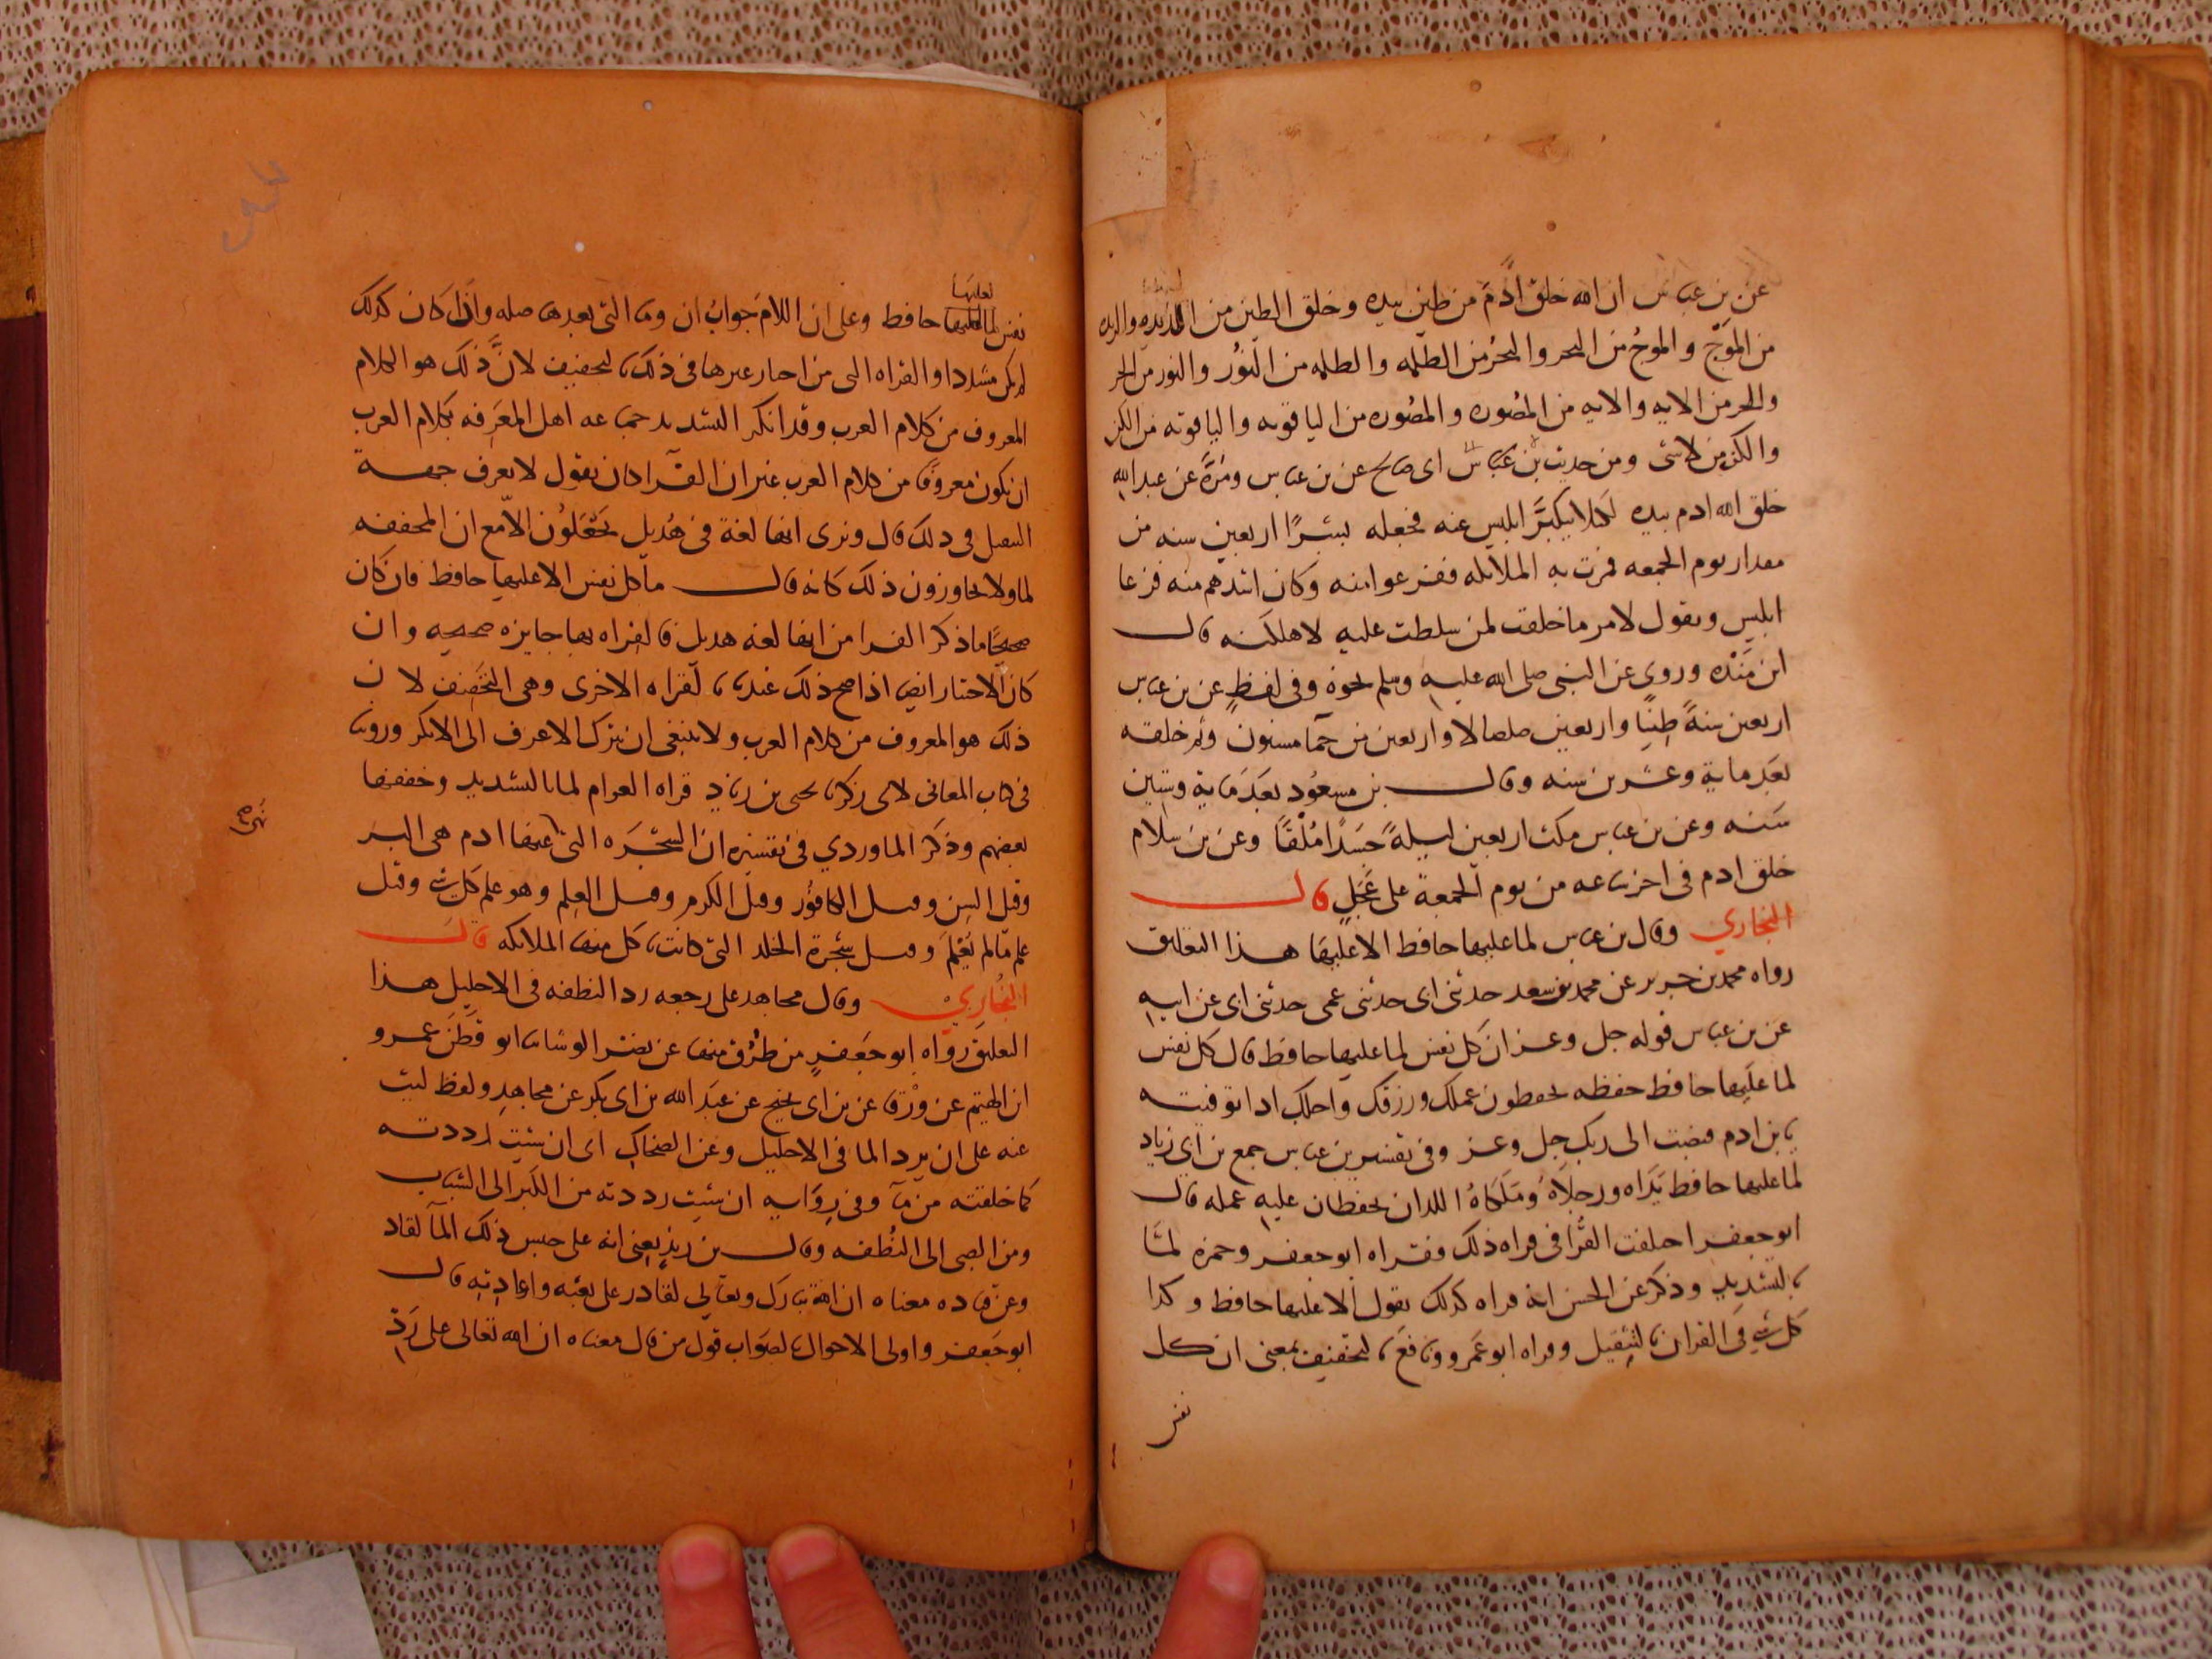 عن بن عباس ان الله خلق ادم من طين بيده وخلق الطين من الزبده والزبده
من الموج والموج من البحر والبحر من الظلمه والظلمه من النور والنور من الحر
والحر من الايه والايه من الصوره والصوره من الياقوته والياقوته من الكن
والكن من لا شى ومن حديث بن عباس ابى صالح عن بن عباس ومرة عن عبد الله
خلق الله ادم بيده لكيلا يتكبر ابليس عنه فجعله بشرًا اربعين سنه من
مقدار يوم الجمعه فمرت به الملائكه ففزعوا منه وكان اشدهم منه فزعا
ابليس ويقول لامر ما خلقت لئن سلطت عليه لاهلكنه قال
ابن مَنْده وروى عن النبى صلى الله عليه وسلم نحوه وفى لفظٍ عن بن عباس
اربعين سنةً طينًا واربعين صلصالا واربعين من حمآ مسنون وتم خلقه
بعد ماية وعشرين سنه وقال بن مسعود بعد ماية وستين
سنه وعن بن عباس مكث اربعين ليلةً جسدًا مُلقًا وعن بن سلام
خلق ادم فى اخر ساعه من يوم الجمعة على عجلٍ قال
البخاري وقال بن عباس لما عليها حافظ الا عليها هذا التعليق
رواه محمد بن جرير عن محمد بن سعد حدثنى ابى حدثنى عمى حدثنى ابى عن ابيه
عن بن عباس قوله جل وعز ان كل نفس لما عليها حافظ قال كل نفس
لما عليها حافظ حفظه يحفظون عملك ورزقك واجلك اذا توفيته
يا بن ادم قبضت الى ربك جل وعز وفى تفسير بن عباس جمع بن ابى زياد
لما عليها حافظ يَدَاه ورجلاهُ ومَلَكاهُ اللذان يحفظان عليه عمله قال
ابو جعفر اختلفت القُرّا فى قراه ذلك فقراه ابو جعفر وحمزه لمّا
بالتشديد وذكر عن الحسن انه قراه كذلك يقول الا عليها حافظ وكذا
كل شى فى القران بالتثقيل وقراه ابو عمرو ونافع بالتخفيف بمعنى ان كل
نفس
لعليها
نفس لما عليها حافظ وعلى ان اللام جوابُ ان وما التى بعدها صله واذا كان كذلك
لم يكن مشددا والقراه التى من اختار غيرها فى ذلك بالتخفيف لانَّ ذلك هو الكلام
المعروف من كلام العرب وقد انكر التشديد جماعه اهل المعرفه بكلام العرب
ان يكون معروفًا من كلام العرب غير ان الفرا كان يقول لا نعرف جهة
التثقيل فى ذلك قال ونرى انها لغة فى هُذيل يَجْعَلُون الاّ مع ان المخففه
لما ولا يجاوزون ذلك كانه قال ما كل نفس الا عليها حافظ فان كان
صحيحًا ما ذكر الفرا من انها لغه هذيل فالقراه بها جايزه صحيحه وان
كان الاختيار ايضا اذا صح ذلك عندنا القراه الاخرى وهى التخفيف لان
ذلك هو المعروف من كلام العرب ولا ينبغى ان يترك الاعرف الى الانكر وروينا
فى كتاب المعانى لابى زكريا يحيى بن زياد قراه العوام لما بالتشديد وخففها
بعضهم وذكر الماوردي فى تفسيره ان الشجَرَه التى نهى عنها ادم هى البر
وقيل التين وقيل الكافُور وقيل الكرم وقيل العِلم وهو علم كل شى وقيل
علم مّا لم يُعْلَمَ وقيل شجرة الخلد التى كانت تاكل منها الملائكه قال
البُخاري وقال مجاهد على رجعه رد النطفه فى الاحليل هذا
التعليق رواه ابو جعفرٍ من طُرُق منها عن نصر الوشا ثنا ابو قَطَن عمرو
ان الهيثم عن وَرْقا عن بن ابى نجيح عن عبد الله بن ابى بكر عن مجاهدِ ولفظ ليث
عنه على ان يرد الما فى الاحليل وعن الضحاك اى ان شيت رددته
كما خلقته من ماء وفى رِوَايه ان شيت رددته من الكِبَر الى الشباب
ومن الصبى الى النُطفه وقال بن زيدٍ يعنى انه على حبس ذلك المآ لقادر
وعن قتاده معناه ان الله تبارك وتعالى لقادر على بعثه واعادته قال
ابو جعفر واولى الاحوال بالصواب قول من قال معناه ان الله تعالى على رَدّ